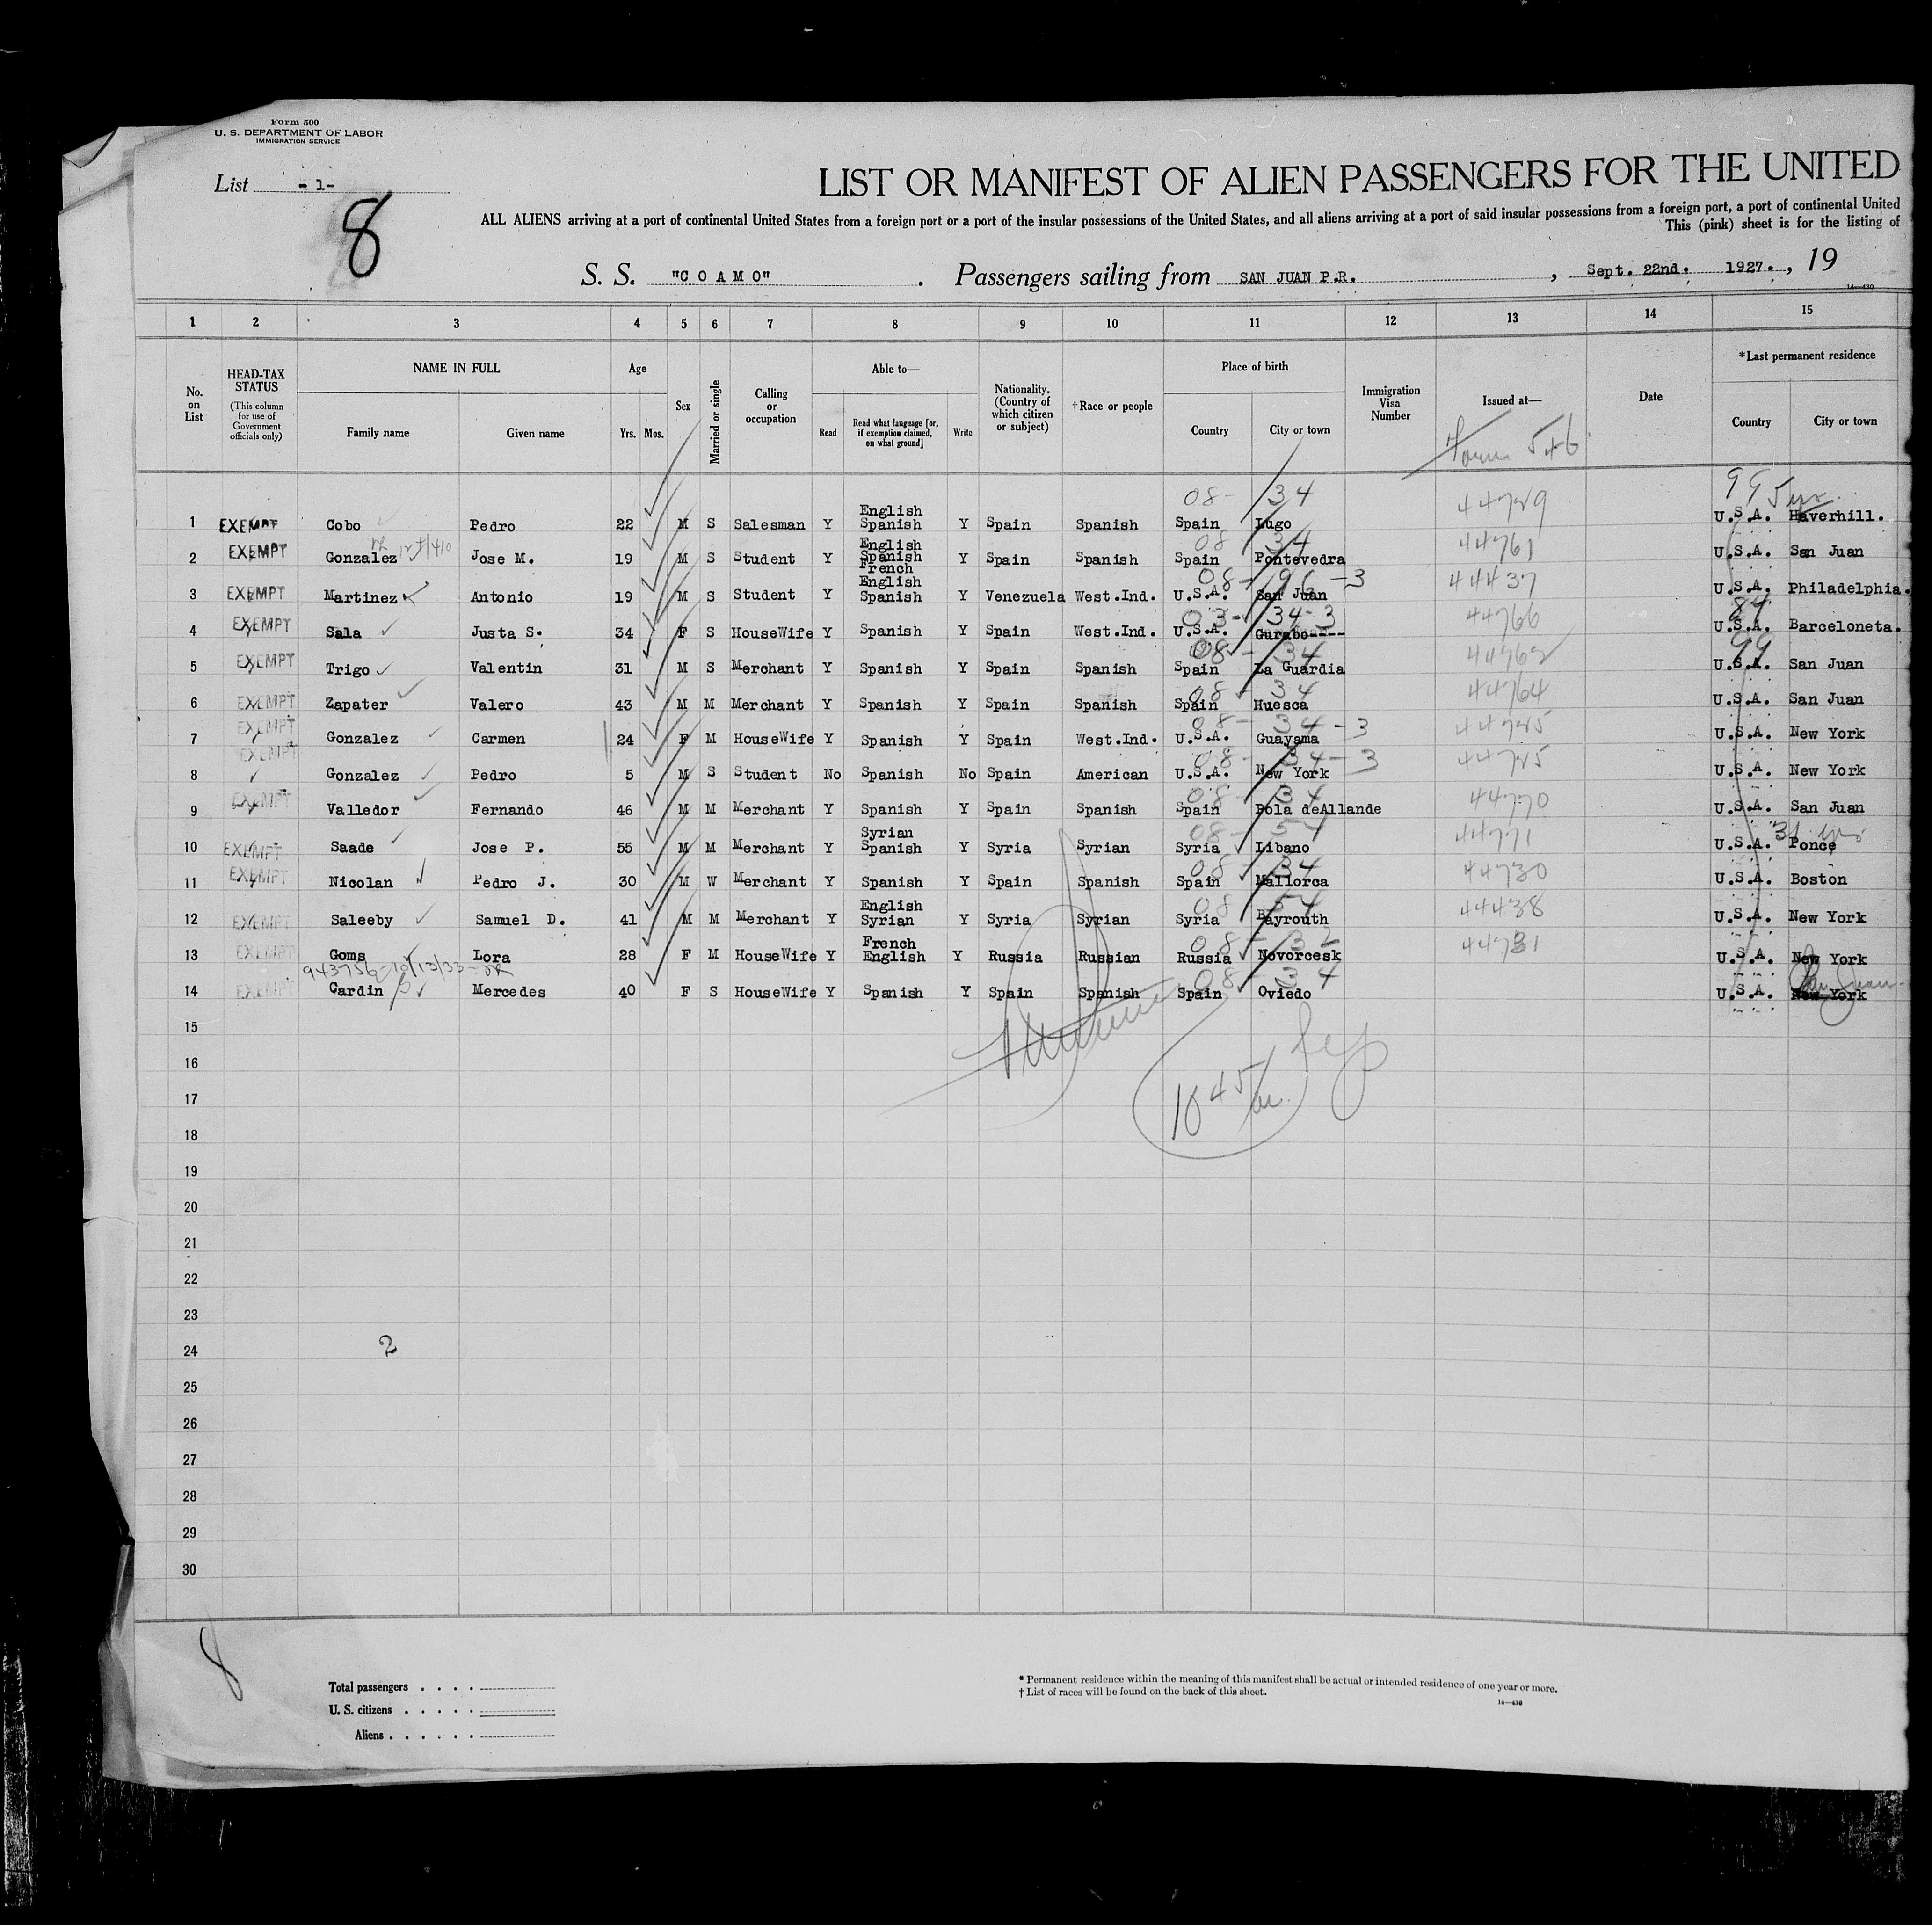 Form 500
U. S. DEPARTMENT OF LABOR
IMMIGRATION SERVICE
List - 1 -
8
LIST OR MANIFEST OF ALIEN PASSENGERS FOR THE UNITED
ALL ALIENS arriving at a port of continental United States from a foreign port or a port of the insular possessions of the United States, and all aliens arriving at a port of said insular possessions from a foreign port, a port of continental United
This (pink) sheet is for the listing of
S. S. "C O A M O" . Passengers sailing from SAN JUAN P.R. , Sept. 22nd. 1927. , 19
14—430
1 2 3 4 5 6 7 8 9 10 11 12 13 14 15
No. on List
HEAD-TAX STATUS (This column for use of Government officials only)
NAME IN FULL Family name Given name
Age Yrs. Mos.
Sex
Married or single
Calling or occupation
Able to— Read Read what language [or, if exemption claimed, on what ground] Write
Nationality. (Country of which citizen or subject)
†Race or people
Place of birth Country City or town
Immigration Visa Number
Issued at—
Form 546
Date
*Last permanent residence Country City or town
1 EXEMPT Cobo Pedro 22 M S Salesman Y English Spanish Y Spain Spanish Spain Lugo 08- 34 44729 99 5 yrs. U.S.A. Haverhill.
2 EXEMPT Gonzalez Jose M. 19 M S Student Y English Spanish French Y Spain Spanish Spain Pontevedra 08 34 44761 U.S.A. San Juan
3 EXEMPT Martinez Antonio 19 M S Student Y English Spanish Y Venezuela West.Ind. U.S.A. San Juan 08- 96 -3 44437 U.S.A. Philadelphia.
4 EXEMPT Sala Justa S. 34 F S HouseWife Y Spanish Y Spain West.Ind. U.S.A. Gurabo---- 03- 34-3 44766 84 U.S.A. Barceloneta.
5 EXEMPT Trigo Valentin 31 M S Merchant Y Spanish Y Spain Spanish Spain La Guardia 08- 34 44762 99 U.S.A. San Juan
6 EXEMPT Zapater Valero 43 M M Merchant Y Spanish Y Spain Spanish Spain Huesca 08- 34 44764 U.S.A. San Juan
7 EXEMPT Gonzalez Carmen 24 F M HouseWife Y Spanish Y Spain West.Ind. U.S.A. Guayama 08- 34-3 44725 U.S.A. New York
8 EXEMPT Gonzalez Pedro 5 M S Student No Spanish No Spain American U.S.A. New York 08- 34-3 44725 U.S.A. New York
9 EXEMPT Valledor Fernando 46 M M Merchant Y Spanish Y Spain Spanish Spain Pola deAllande 08- 34 44770 U.S.A. San Juan
10 EXEMPT Saade Jose P. 55 M M Merchant Y Syrian Spanish Y Syria Syrian Syria Libano 08- 54 44771 U.S.A. Ponce
11 EXEMPT Nicolan Pedro J. 30 M W Merchant Y Spanish Y Spain Spanish Spain Mallorca 08- 34 44730 U.S.A. Boston
12 EXEMPT Saleeby Samuel D. 41 M M Merchant Y English Syrian Y Syria Syrian Syria Bayrouth 08 54 44438 U.S.A. New York
13 EXEMPT Goms Lora 28 F M HouseWife Y French English Y Russia Russian Russia Novorcesk 08- 32 44731 U.S.A. New York
943756-10/13/33
14 EXEMPT Cardin Mercedes 40 F S HouseWife Y Spanish Y Spain Spanish Spain Oviedo 08- 34 U.S.A. New York San Juan
15
16
17
18
19
20
21
22
23
24 2
25
26
27
28
29
30
8
Total passengers . . . .
U. S. citizens . . . . .
Aliens . . . . . .
* Permanent residence within the meaning of this manifest shall be actual or intended residence of one year or more.
† List of races will be found on the back of this sheet.
14—430